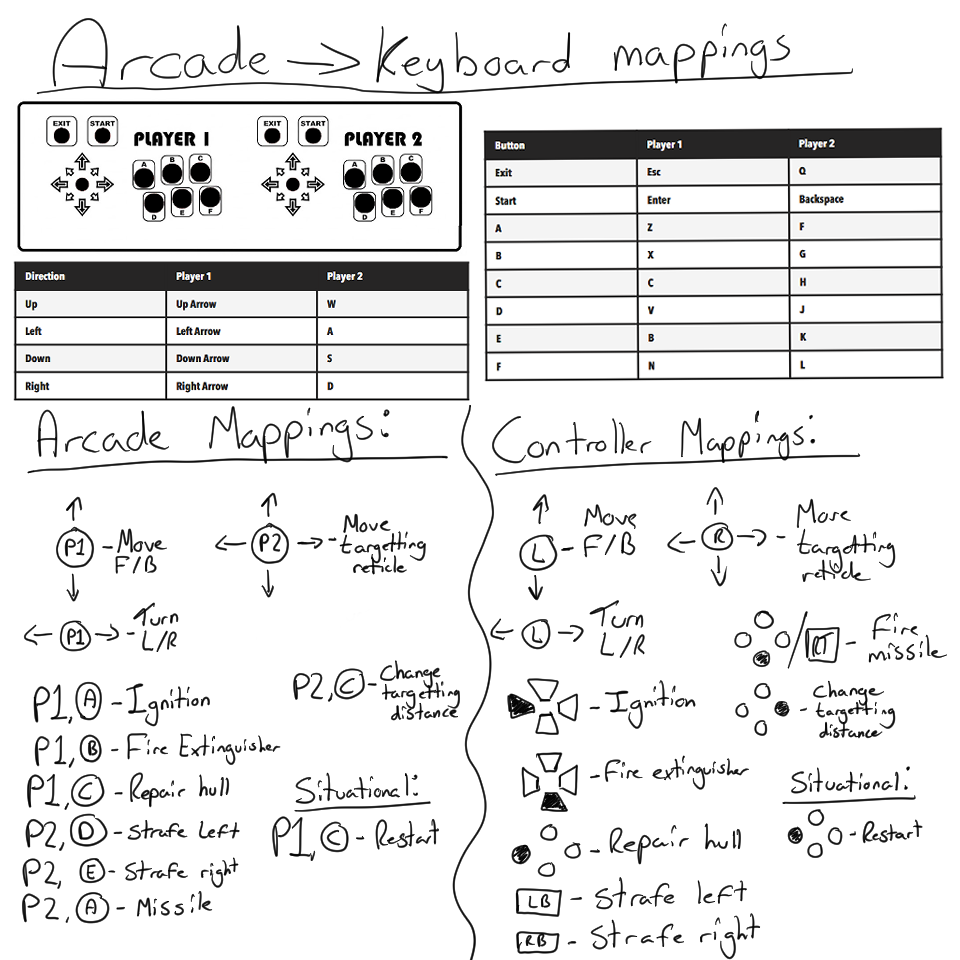 Arcade → Keyboard mappings
EXIT START EXIT START
PLAYER 1 PLAYER 2
A B C A B C
D E F D E F
Button Player 1 Player 2
Exit Esc Q
Start Enter Backspace
A Z F
B X G
C C H
D V J
E B K
F N L
Direction Player 1 Player 2
Up Up Arrow W
Left Left Arrow A
Down Down Arrow S
Right Right Arrow D
Arcade Mappings:
P1 - Move
F/B
P2 - Move
targetting
reticle
P1 - Turn
L/R
P1, A - Ignition
P1, B - Fire Extinguisher
P1, C - Repair hull
P2, D - Strafe left
P2, E - Strafe right
P2, A - Missile
P2, C - Change
targetting
distance
Situational:
P1, C - Restart
Controller Mappings:
L - Move
F/B
R - Move
targetting
reticle
L Turn
L/R
/ RT - Fire
missile
- Ignition
- Change
targetting
distance
- Fire extinguisher
- Repair hull
LB - Strafe left
RB - Strafe right
Situational:
- Restart